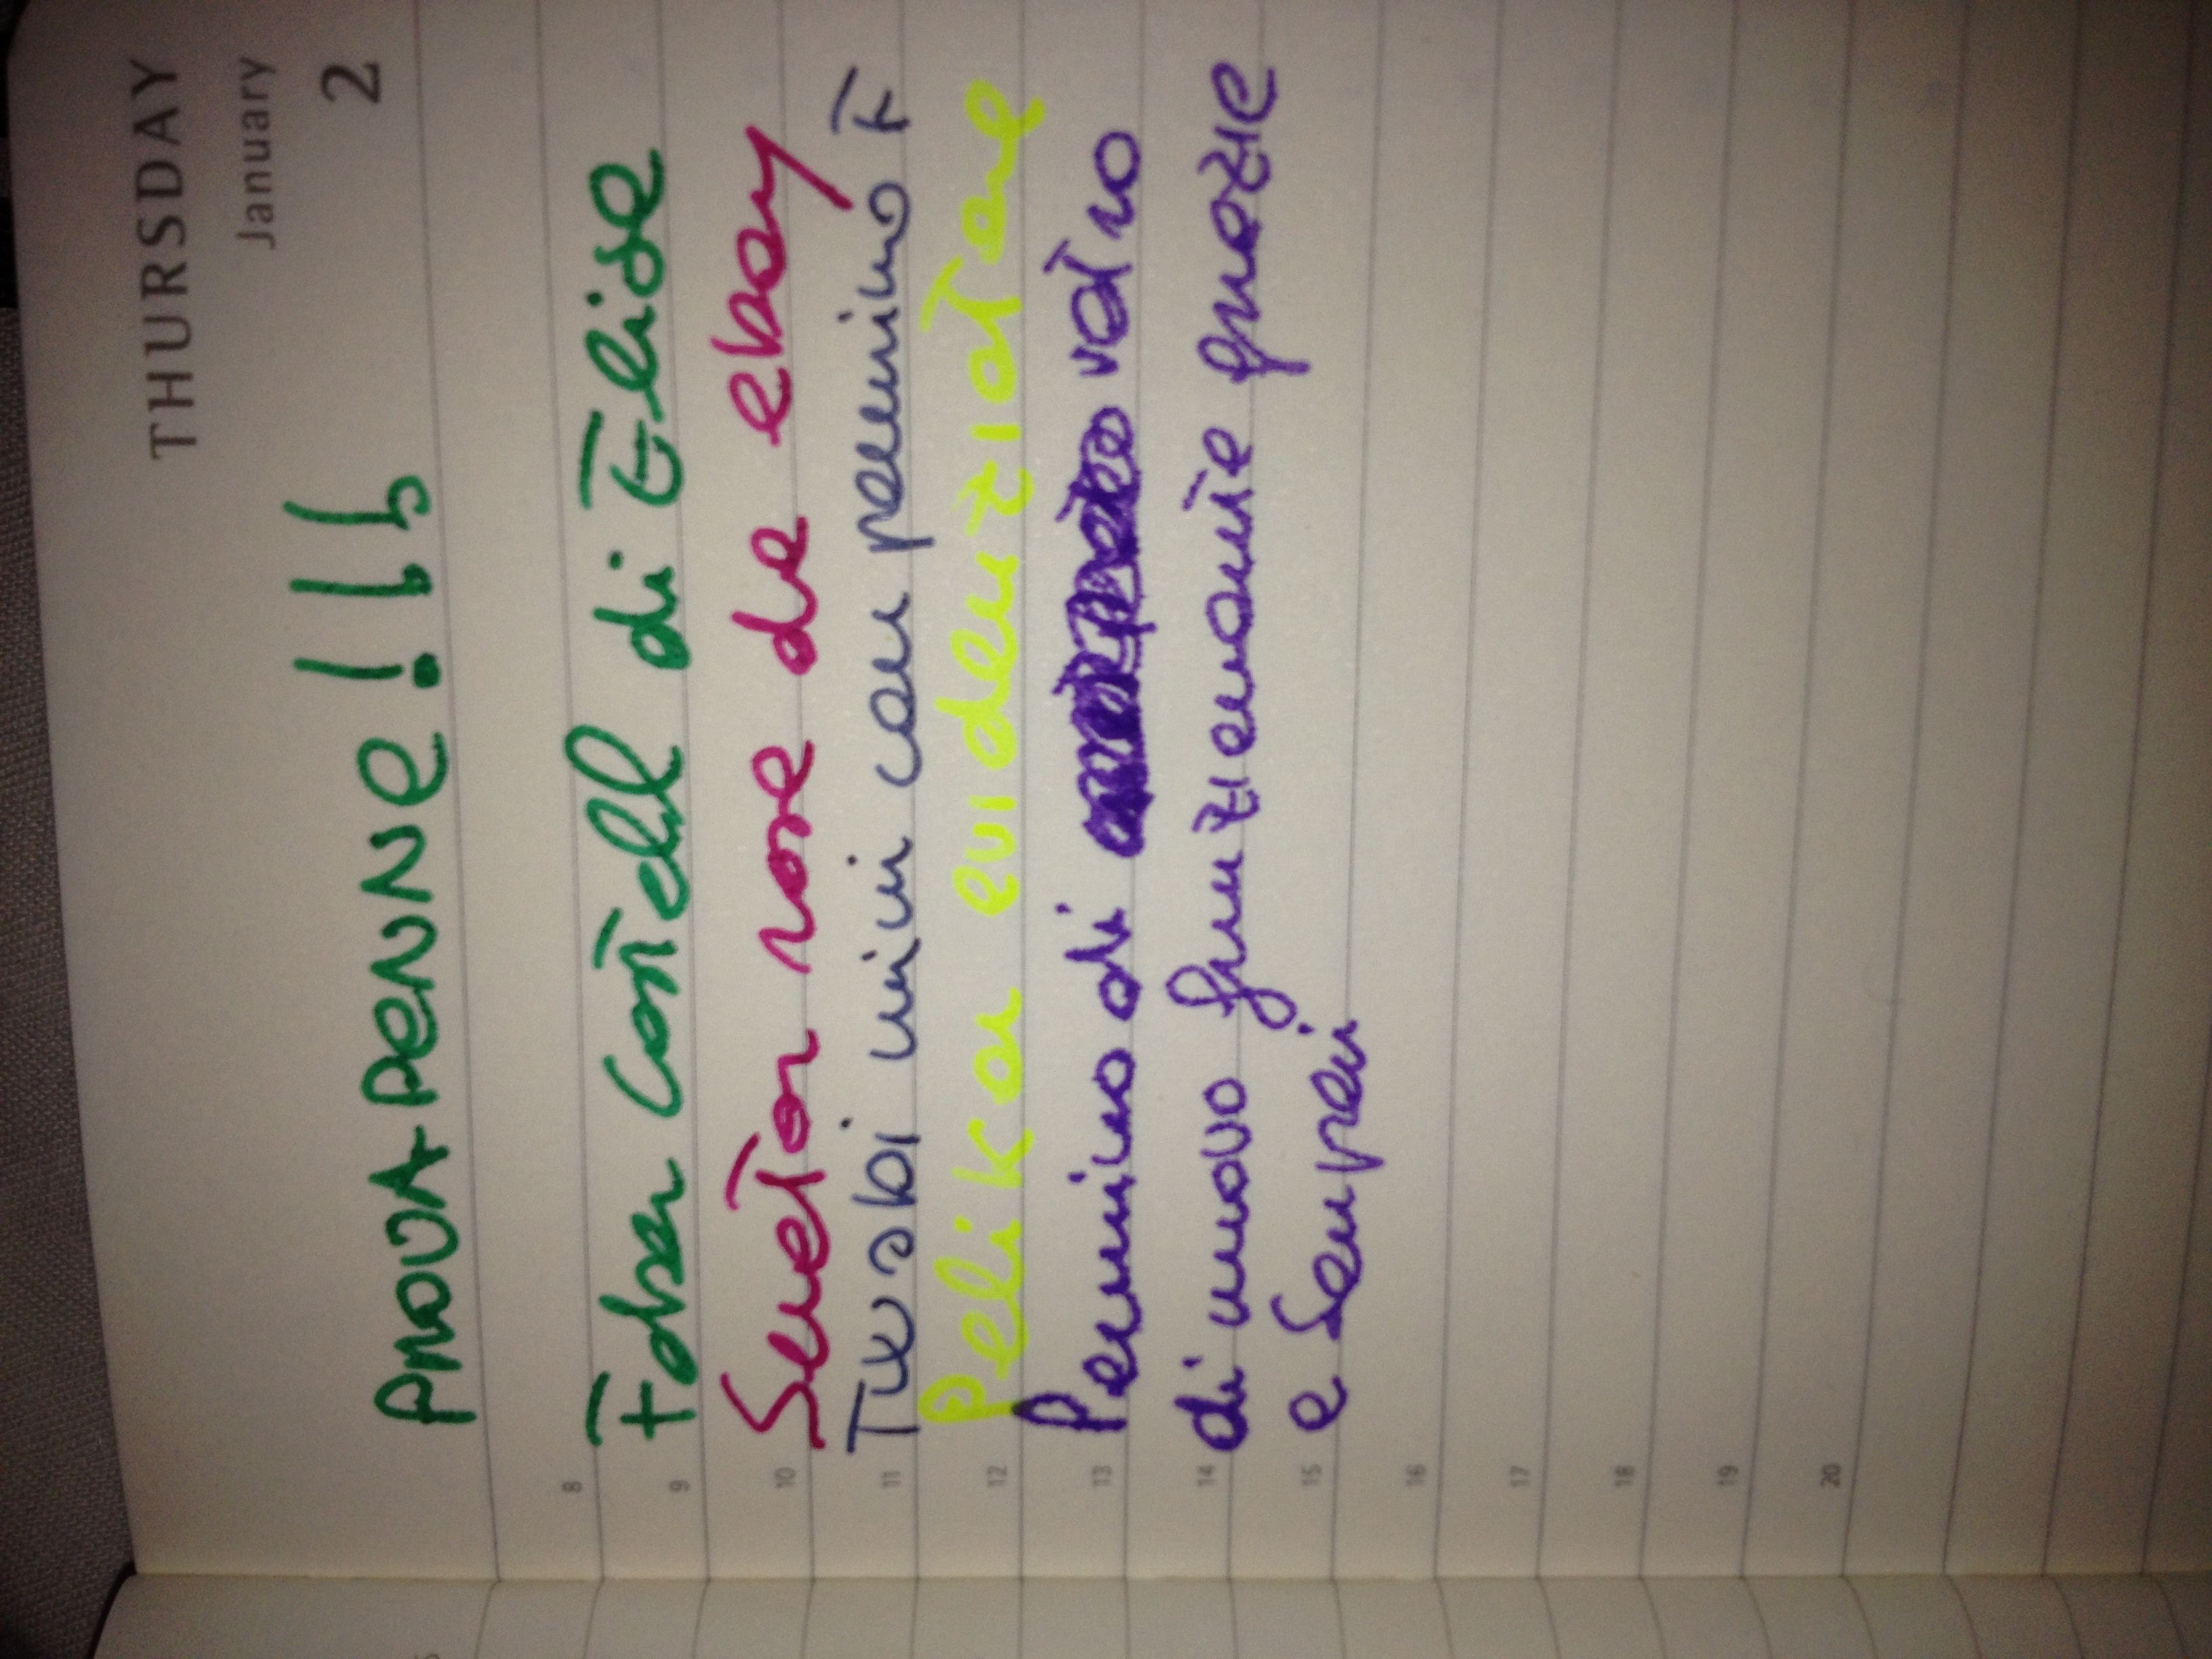 THURSDAY
January
2
PROVA PENNE!!!
8
Faber Castell di Elisa
9
Senator rosa da ebay
10
Twsbi mini con pennino F
11
Pelikan evidenziatore
12
Pennino di vetro
13
di nuovo funzionante grazie
14
a Sempei
15
16
17
18
19
20